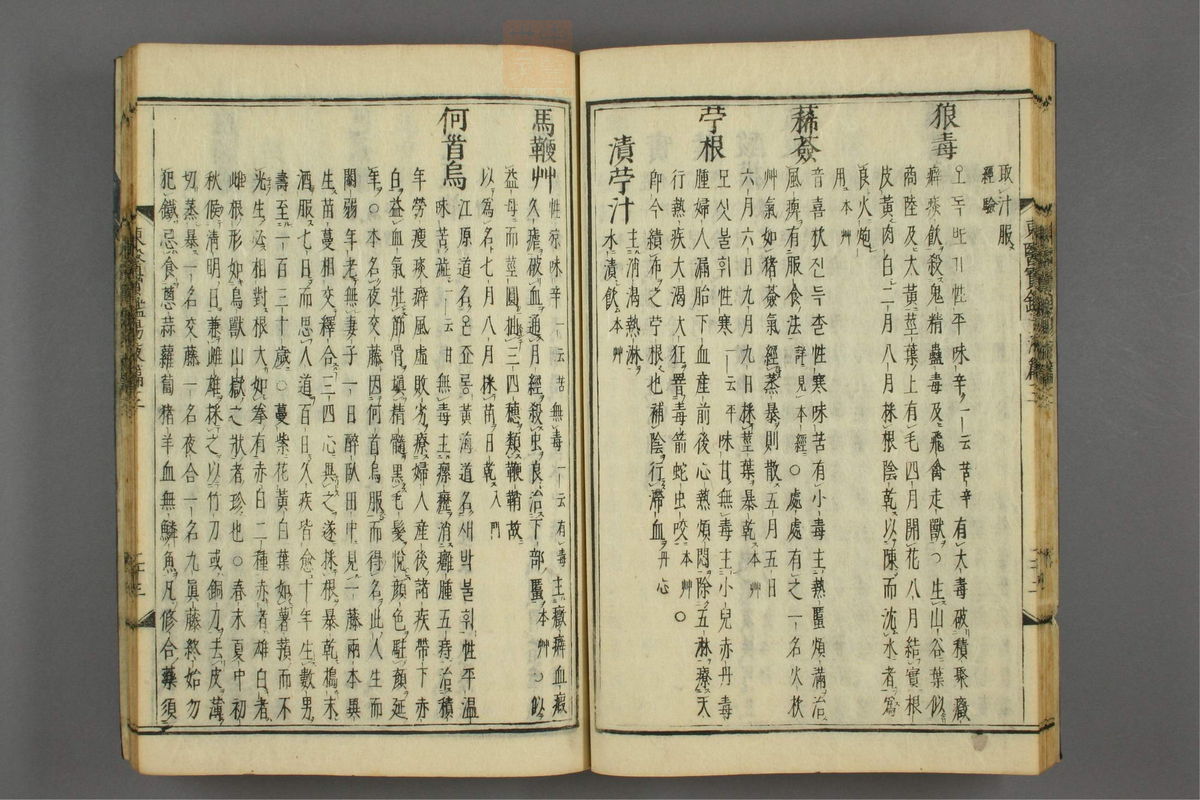 取汁服
經驗
狼毒
오독ᄯᅩ기性平味辛一云苦辛有大毒破積聚癥
癖痰飮殺鬼精蠱毒及飛禽走獸○生山谷葉似
商陸及大黃莖葉上有毛四月開花八月結實根
皮黃肉白二月八月採根陰乾以陳而沈水者爲
良火炮
用本艸
豨薟
音喜枚진득ᄎᆞᆯ性寒味苦有小毒主熱䘌煩滿治
風痺有服食法詳見本經○處處有之一名火枚
艸氣如猪薟氣經蒸暴則散五月五日
六月六日九月九日採莖葉暴乾本艸
苧根
모싯불휘性寒一云平味甘無毒主小兒赤丹毒
腫婦人漏胎下血産前後心熱煩悶除五淋療天
行熱疾大渴大狂詈毒箭蛇虫咬本艸○
卽今績布之苧根也補陰行滯血丹心
漬苧汁
主消渴熱淋
水漬飮本艸
馬鞭艸
性凉味辛一云苦無毒一云有毒主癥癖血瘕
久瘧破血通月經殺虫良治下部䘌本艸○似
益母而莖圓抽三四穗類鞭鞘故
以爲名七月八月採苗日乾入門
何首烏
江原道名은죠롱黃海道名새박불휘性平溫
味苦澁一云甘無毒主瘰癧消癰腫五痔治積
年勞瘦痰癖風虛敗劣療婦人産後諸疾帶下赤
白益血氣壯筋骨塡精髓黑毛髮悅顔色駐顔延
年○本名夜交藤因何首烏服而得名此人生而
閹弱年老無妻子一日醉臥田中見一藤兩本異
生苗蔓相交釋合三四心異之遂採根暴乾擣末
酒服七日而思人道百日久疾皆愈十年生數男
壽至一百三十歲○蔓紫花黃白葉如薯蕷而不
光生必相對根大如拳有赤白二種赤者雄白者
雌根形如烏獸山嶽之狀者珍也○春末夏中初
秋候淸明日兼雌雄採之以竹刀或銅刀去皮薄
切蒸暴一名交藤一名夜合一名九眞藤終始勿
犯鐵忌食蔥蒜蘿蔔猪羊血無鱗魚凡修合藥須